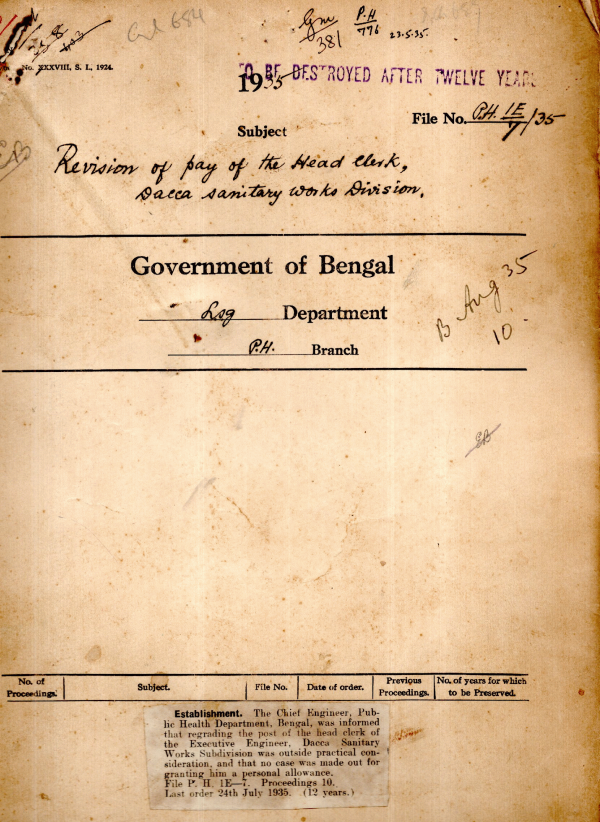 Gm
381
P.H
776
23.5.35.
No. XXXVIII, S. I., 1924.
TO BE DESTROYED AFTER TWELVE YEARS
1935
File No. P.H. 1E/7/35
Subject
Revision of pay of the Head Clerk,
Dacca Sanitary Works Division.
Government of Bengal
Lsg Department
P.H. Branch
B Aug 35
10.
No. of Proceedings. Subject. File No. Date of order. Previous Proceedings. No. of years for which to be Preserved.
Establishment. The Chief Engineer, Pub-
lic Health Department, Bengal, was informed
that regrading the post of the head clerk of
the Executive Engineer, Dacca Sanitary
Works Subdivision was outside practical con-
sideration, and that no case was made out for
granting him a personal allowance.
File P. H. 1E—7. Proceedings 10.
Last order 24th July 1935. (12 years.)